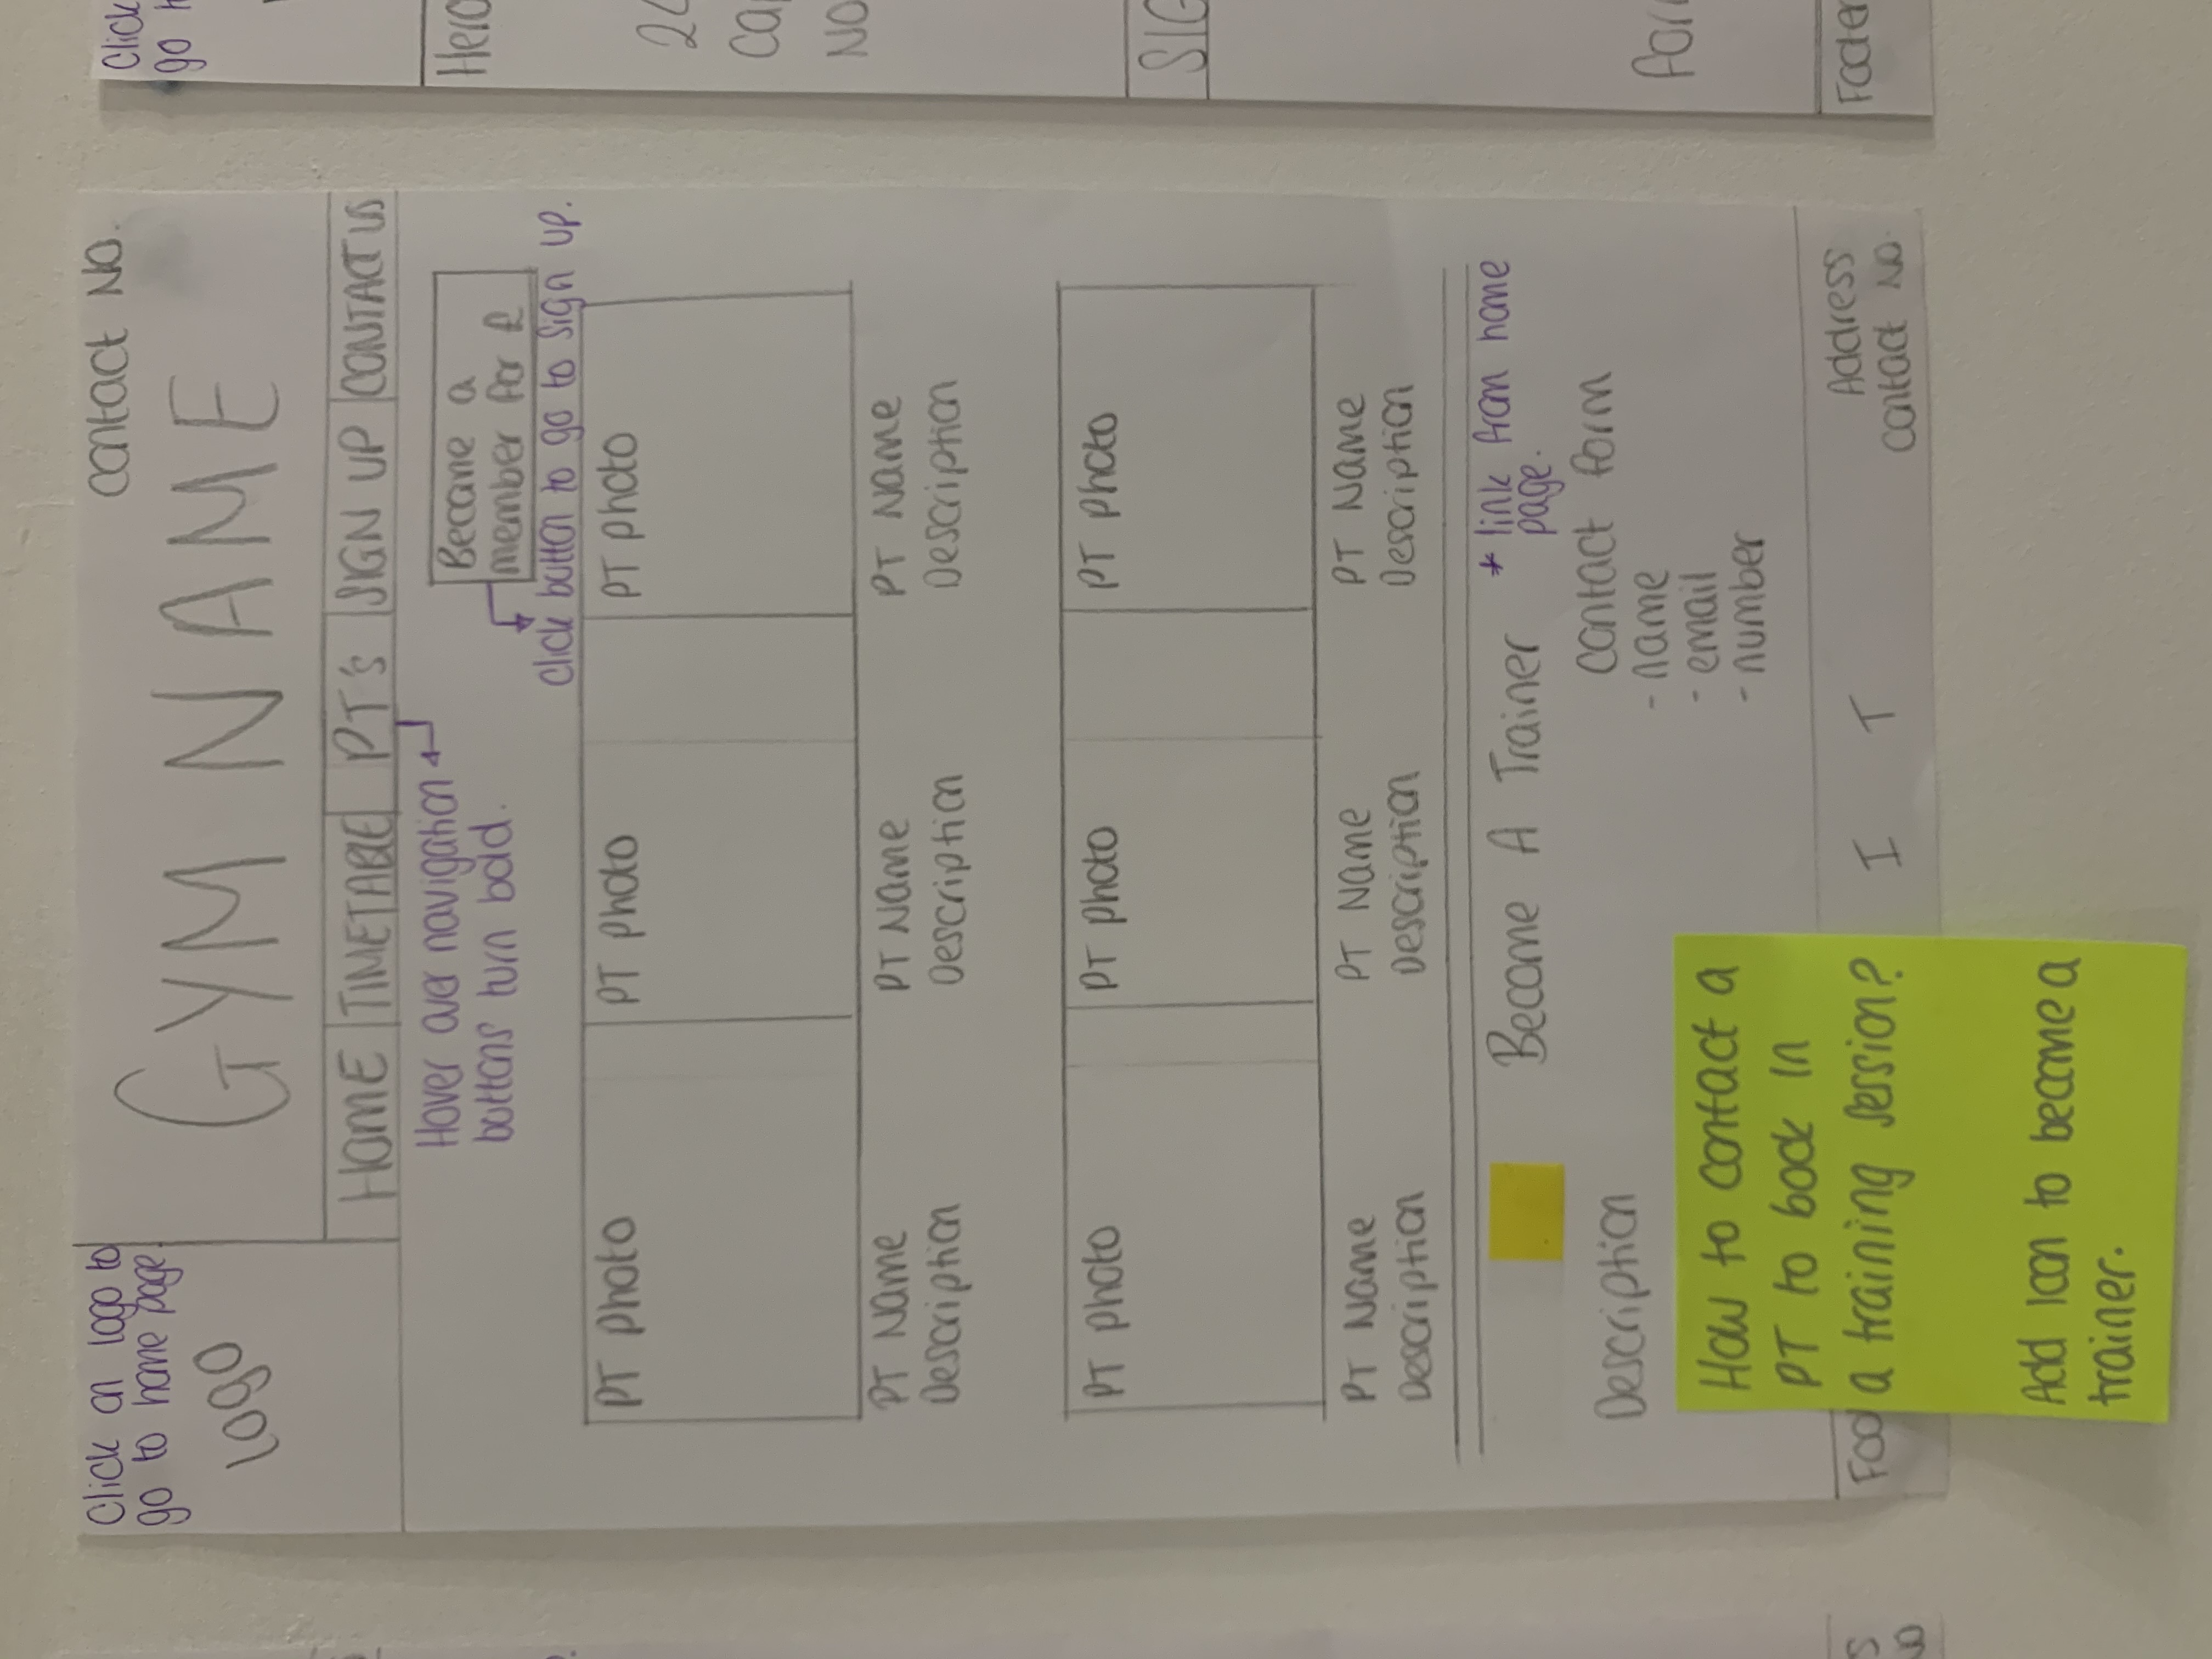 Click on logo to
go to home page
logo
contact NO.
GYM NAME
HOME
TIMETABLE
PT's
SIGN UP
CONTACT US
Hover over navigation
buttons turn bold.
Become a
member for £
click button to go to sign up.
PT photo
PT photo
PT photo
PT Name
Description
PT Name
Description
PT Name
Description
PT photo
PT photo
PT photo
PT Name
Description
PT Name
Description
PT Name
Description
Become A Trainer
* link from home
page.
Description
contact form
- name
- email
- number
How to contact a
PT to book in
a training session?
Add icon to become a
trainer.
Foo
I
T
Address
contact NO.
Click
go
Hero
NO
Footer